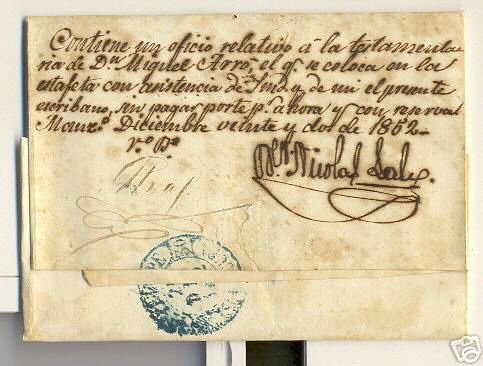 Contiene un oficio relativo á la testamenta
ria de Dn Miguel Arró, el qe se coloca en la
estafeta con asistencia de Smd. y de mi el presente
escribano, sin pagar porte pr ahora y con reserva
Decembre veinte y dos de 1852.
Vo Bo
Nicolas